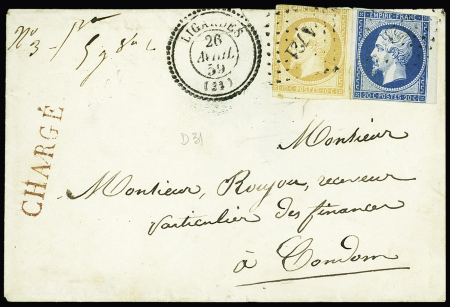 No
3
LIGARDES
26
AVRIL
59
(31)
EMPIRE FRANC
10 C. POSTES 10 C.
20 C. POSTES 20 C.
CHARGÉ
D 31
Monsieur
Monsieur, Roujou, receveur
particulier des finances
à Condom